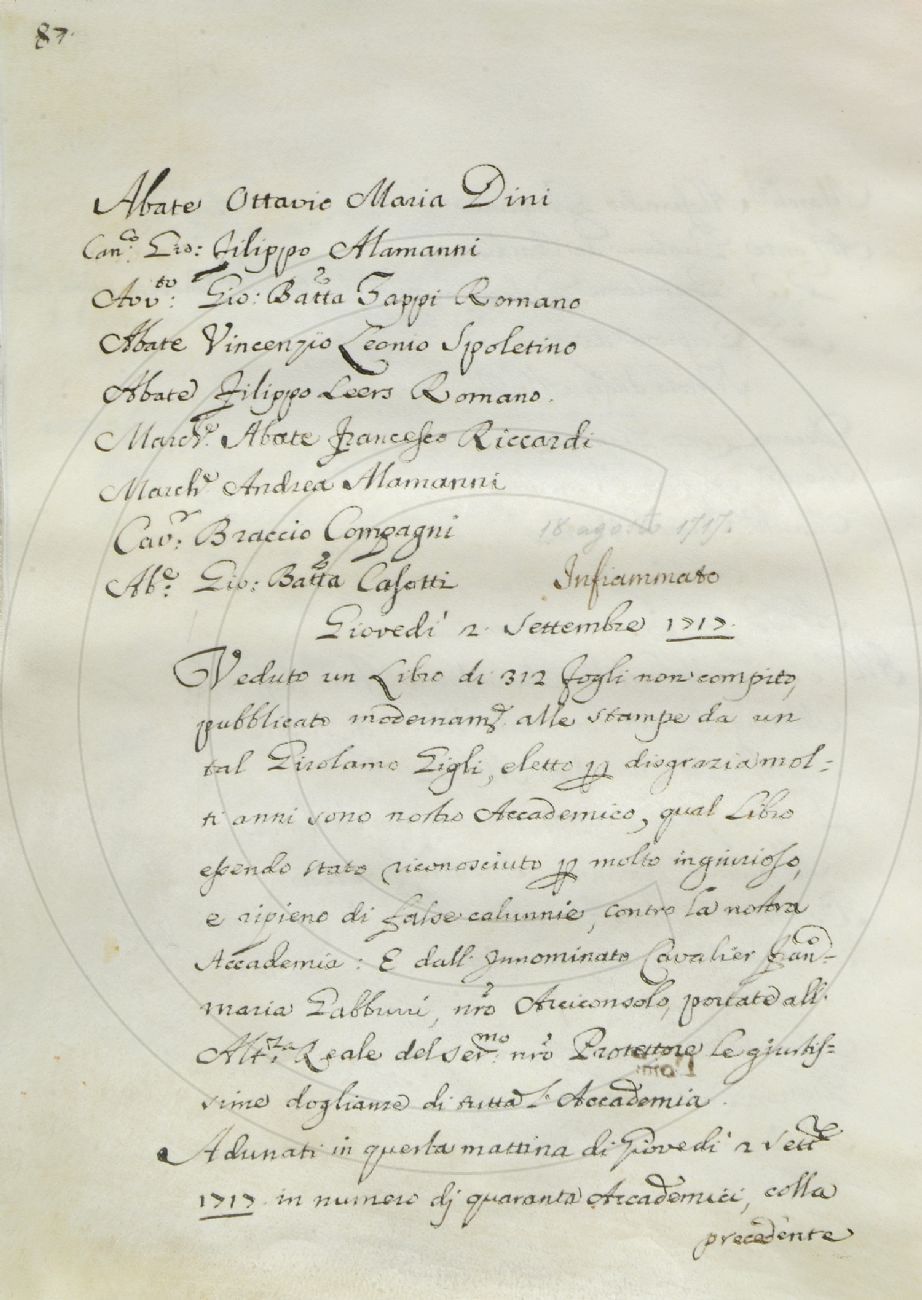 87.
Abate Ottavio Maria Dini
Can.co Gio: Filippo Alamanni
Avv.to: Gio: Batta Zappi Romano
Abate Vincenzio Leonio Spoletino
Abate Filippo Leers Romano.
March.e Abate Francesco Riccardi
March.e Andrea Alamanni
Cav.r: Braccio Compagni
18 agosto 1717.
Ab.e: Gio: Batta Casotti
Infiammato
Giovedì 2. Settembre 1717.
Veduto un Libro di 312 fogli non compito,
pubblicato modernam.e alle stampe da un
tal Girolamo Gigli, eletto p disgrazia mol=
ti anni sono nostro Accademico, qual Libro
essendo stato riconosciuto p molto ingiurioso,
e ripieno di false calunnie, contro la nostra
Accademia: E dall' Innominato Cavalier Fran.=
maria Gabburri, nro Arciconsolo, portate all'
Alt.za Reale del Ser.mo nro Protettore le giustis=
sime doglianze di tutta l' Accademia.
Adunati in questa mattina di Giovedì 2 Sett.e
1717. in numero dj quaranta Accademici, colla
precedente